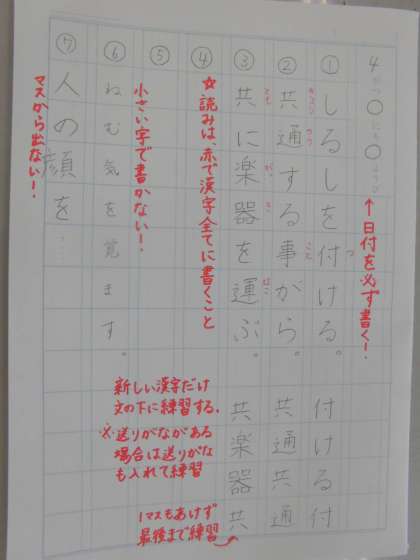 4 ○ ○
↑日付を必ず書く！
①しるしを付ける。 付ける付
つ
②共通する事がら。 共通共通
きょうつう こと
③共に楽器を運ぶ。 共楽器共
とも がっき はこ
④
☆読みは、赤で漢字全てに書くこと
⑤
小さい字で書かない！
⑥ねむ気を覚ます。
⑦人の顔を
マスから出ない！
新しい漢字だけ
文の下に練習する。
※送りがながある
場合は送りがな
も入れて練習
1マスもあけず
最後まで練習